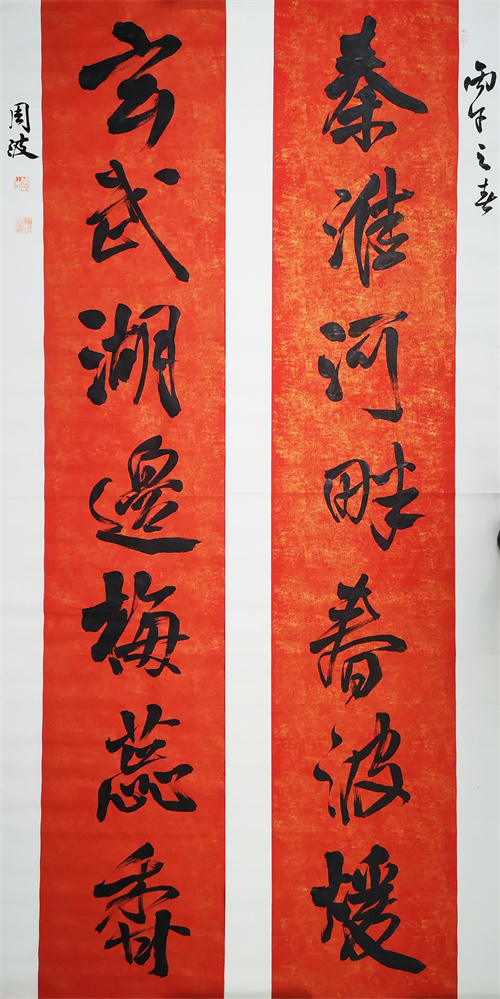 丙午之春
秦淮河畔春波煖
玄武湖邊梅蕊香
周波